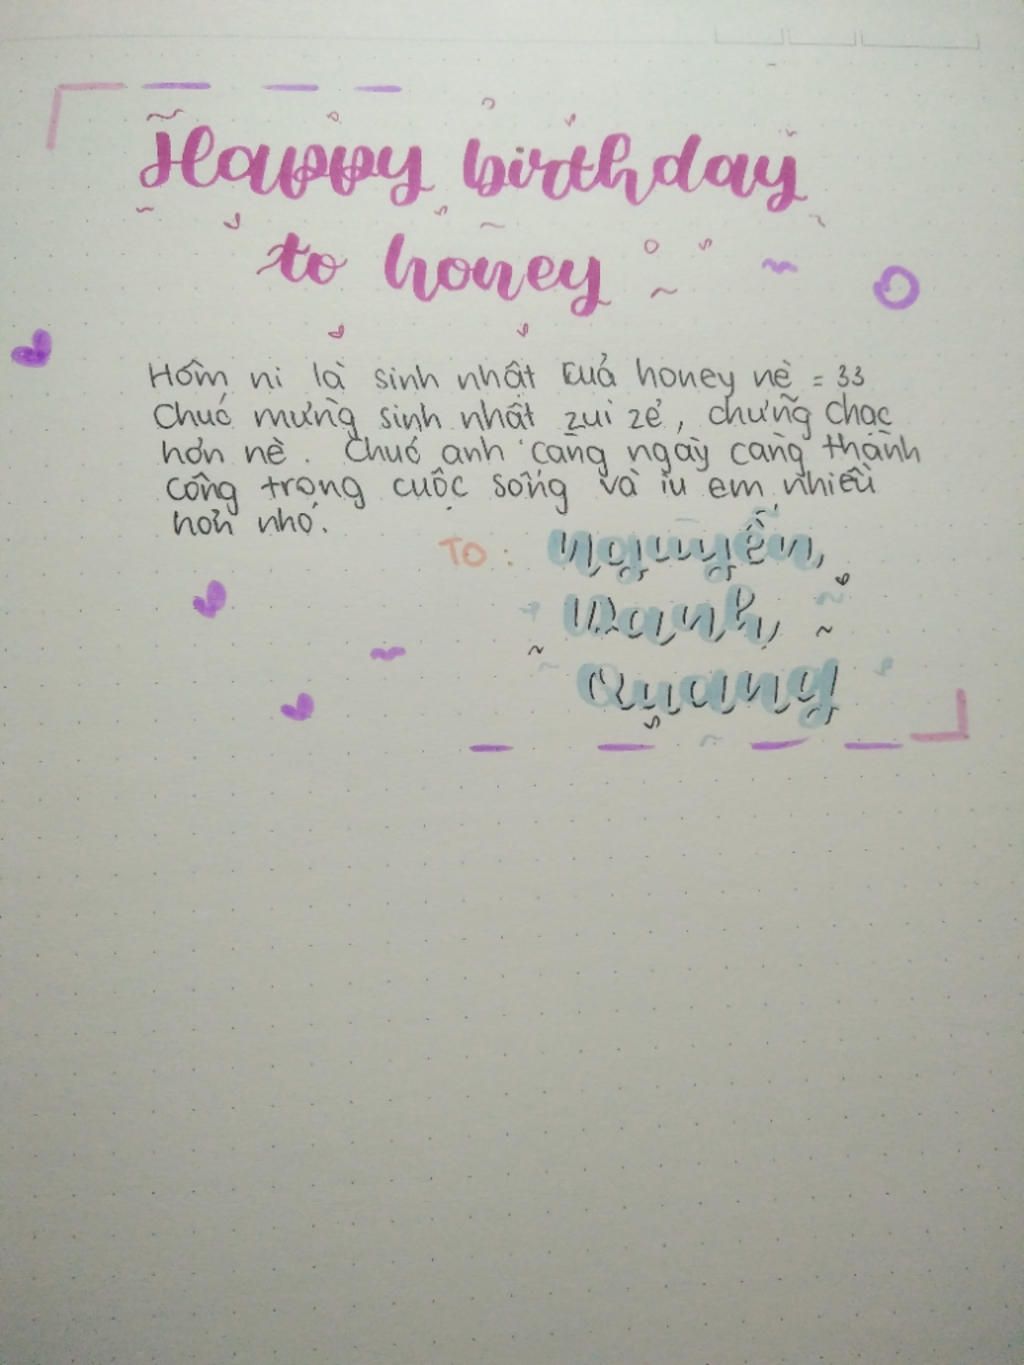 Happy birthday
to honey
Hôm ni là sinh nhật của honey nè =33
Chúc mừng sinh nhật zui zẻ, chững chạc
hơn nè. Chúc anh càng ngày càng thành
công trong cuộc sống và iu em nhiều
hơn nhó.
TO: Nguyễn
Danh
Quang